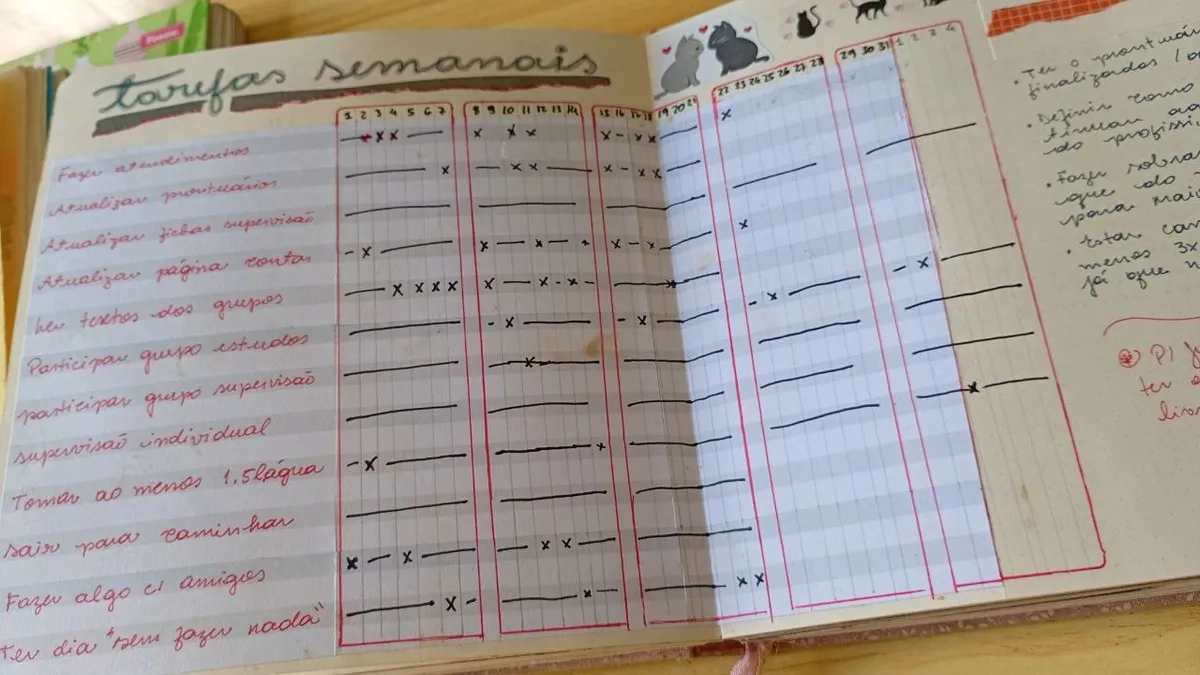 tarefas semanais
1 2 3 4 5 6 7 8 9 10 11 12 13 14 15 16 17 18 19 20 21 22 23 24 25 26 27 28 29 30 31 1 2 3 4
Fazer atendimentos
Atualizar prontuários
Atualizar fichas supervisão
Atualizar página contas
Ler textos dos grupos
Participar grupo estudos
participar grupo supervisão
supervisão individual
Tomar ao menos 1.5L água
sair para caminhar
Fazer algo c/ amigos
Ter dia "sem fazer nada"
• Ter o
finalizados
• Definir como
do
• Fazer
que do
para
• Estar
menos 3x
já que
P/
ter